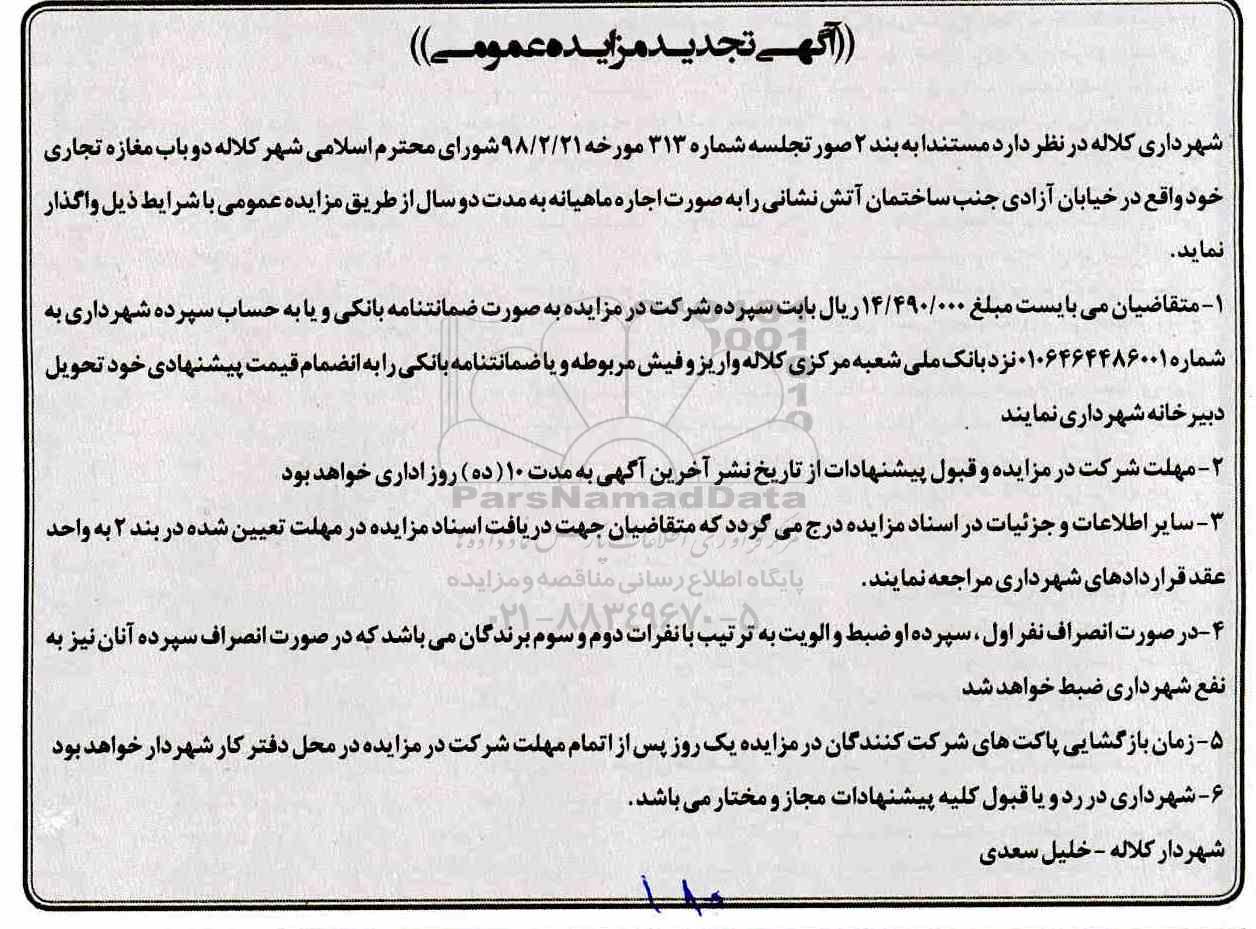 ((آگهی تجدید مزایده عمومی))
شهرداری کلاله در نظر دارد مستندا به بند ۲ صورتجلسه شماره ۳۱۳ مورخه ۹۸/۲/۲۱ شورای محترم اسلامی شهر کلاله دو باب مغازه تجاری
خود واقع در خیابان آزادی جنب ساختمان آتش نشانی را به صورت اجاره ماهیانه به مدت دو سال از طریق مزایده عمومی با شرایط ذیل واگذار
نماید.
۱- متقاضیان می بایست مبلغ ۱۴/۴۹۰/۰۰۰ ریال بابت سپرده شرکت در مزایده به صورت ضمانتنامه بانکی و یا به حساب سپرده شهرداری به
شماره ۰۱۰۶۴۶۴۴۸۶۰۰۱ نزد بانک ملی شعبه مرکزی کلاله واریز و فیش مربوطه و یا ضمانتنامه بانکی را به انضمام قیمت پیشنهادی خود تحویل
دبیرخانه شهرداری نمایند
۲- مهلت شرکت در مزایده و قبول پیشنهادات از تاریخ نشر آخرین آگهی به مدت ۱۰ (ده) روز اداری خواهد بود
ParsNamadData
۳- سایر اطلاعات و جزئیات در اسناد مزایده درج می گردد که متقاضیان جهت دریافت اسناد مزایده در مهلت تعیین شده در بند ۲ به واحد
عقد قراردادهای شهرداری مراجعه نمایند.
پایگاه اطلاع رسانی مناقصه و مزایده
۰۲۱-۸۸۳۴۹۶۷۰-۵
۴- در صورت انصراف نفر اول، سپرده او ضبط و الویت به ترتیب با نفرات دوم و سوم برندگان می باشد که در صورت انصراف سپرده آنان نیز به
نفع شهرداری ضبط خواهد شد
۵- زمان بازگشایی پاکت های شرکت کنندگان در مزایده یک روز پس از اتمام مهلت شرکت در مزایده در محل دفتر کار شهردار خواهد بود
۶- شهرداری در رد و یا قبول کلیه پیشنهادات مجاز و مختار می باشد.
شهردار کلاله - خلیل سعدی